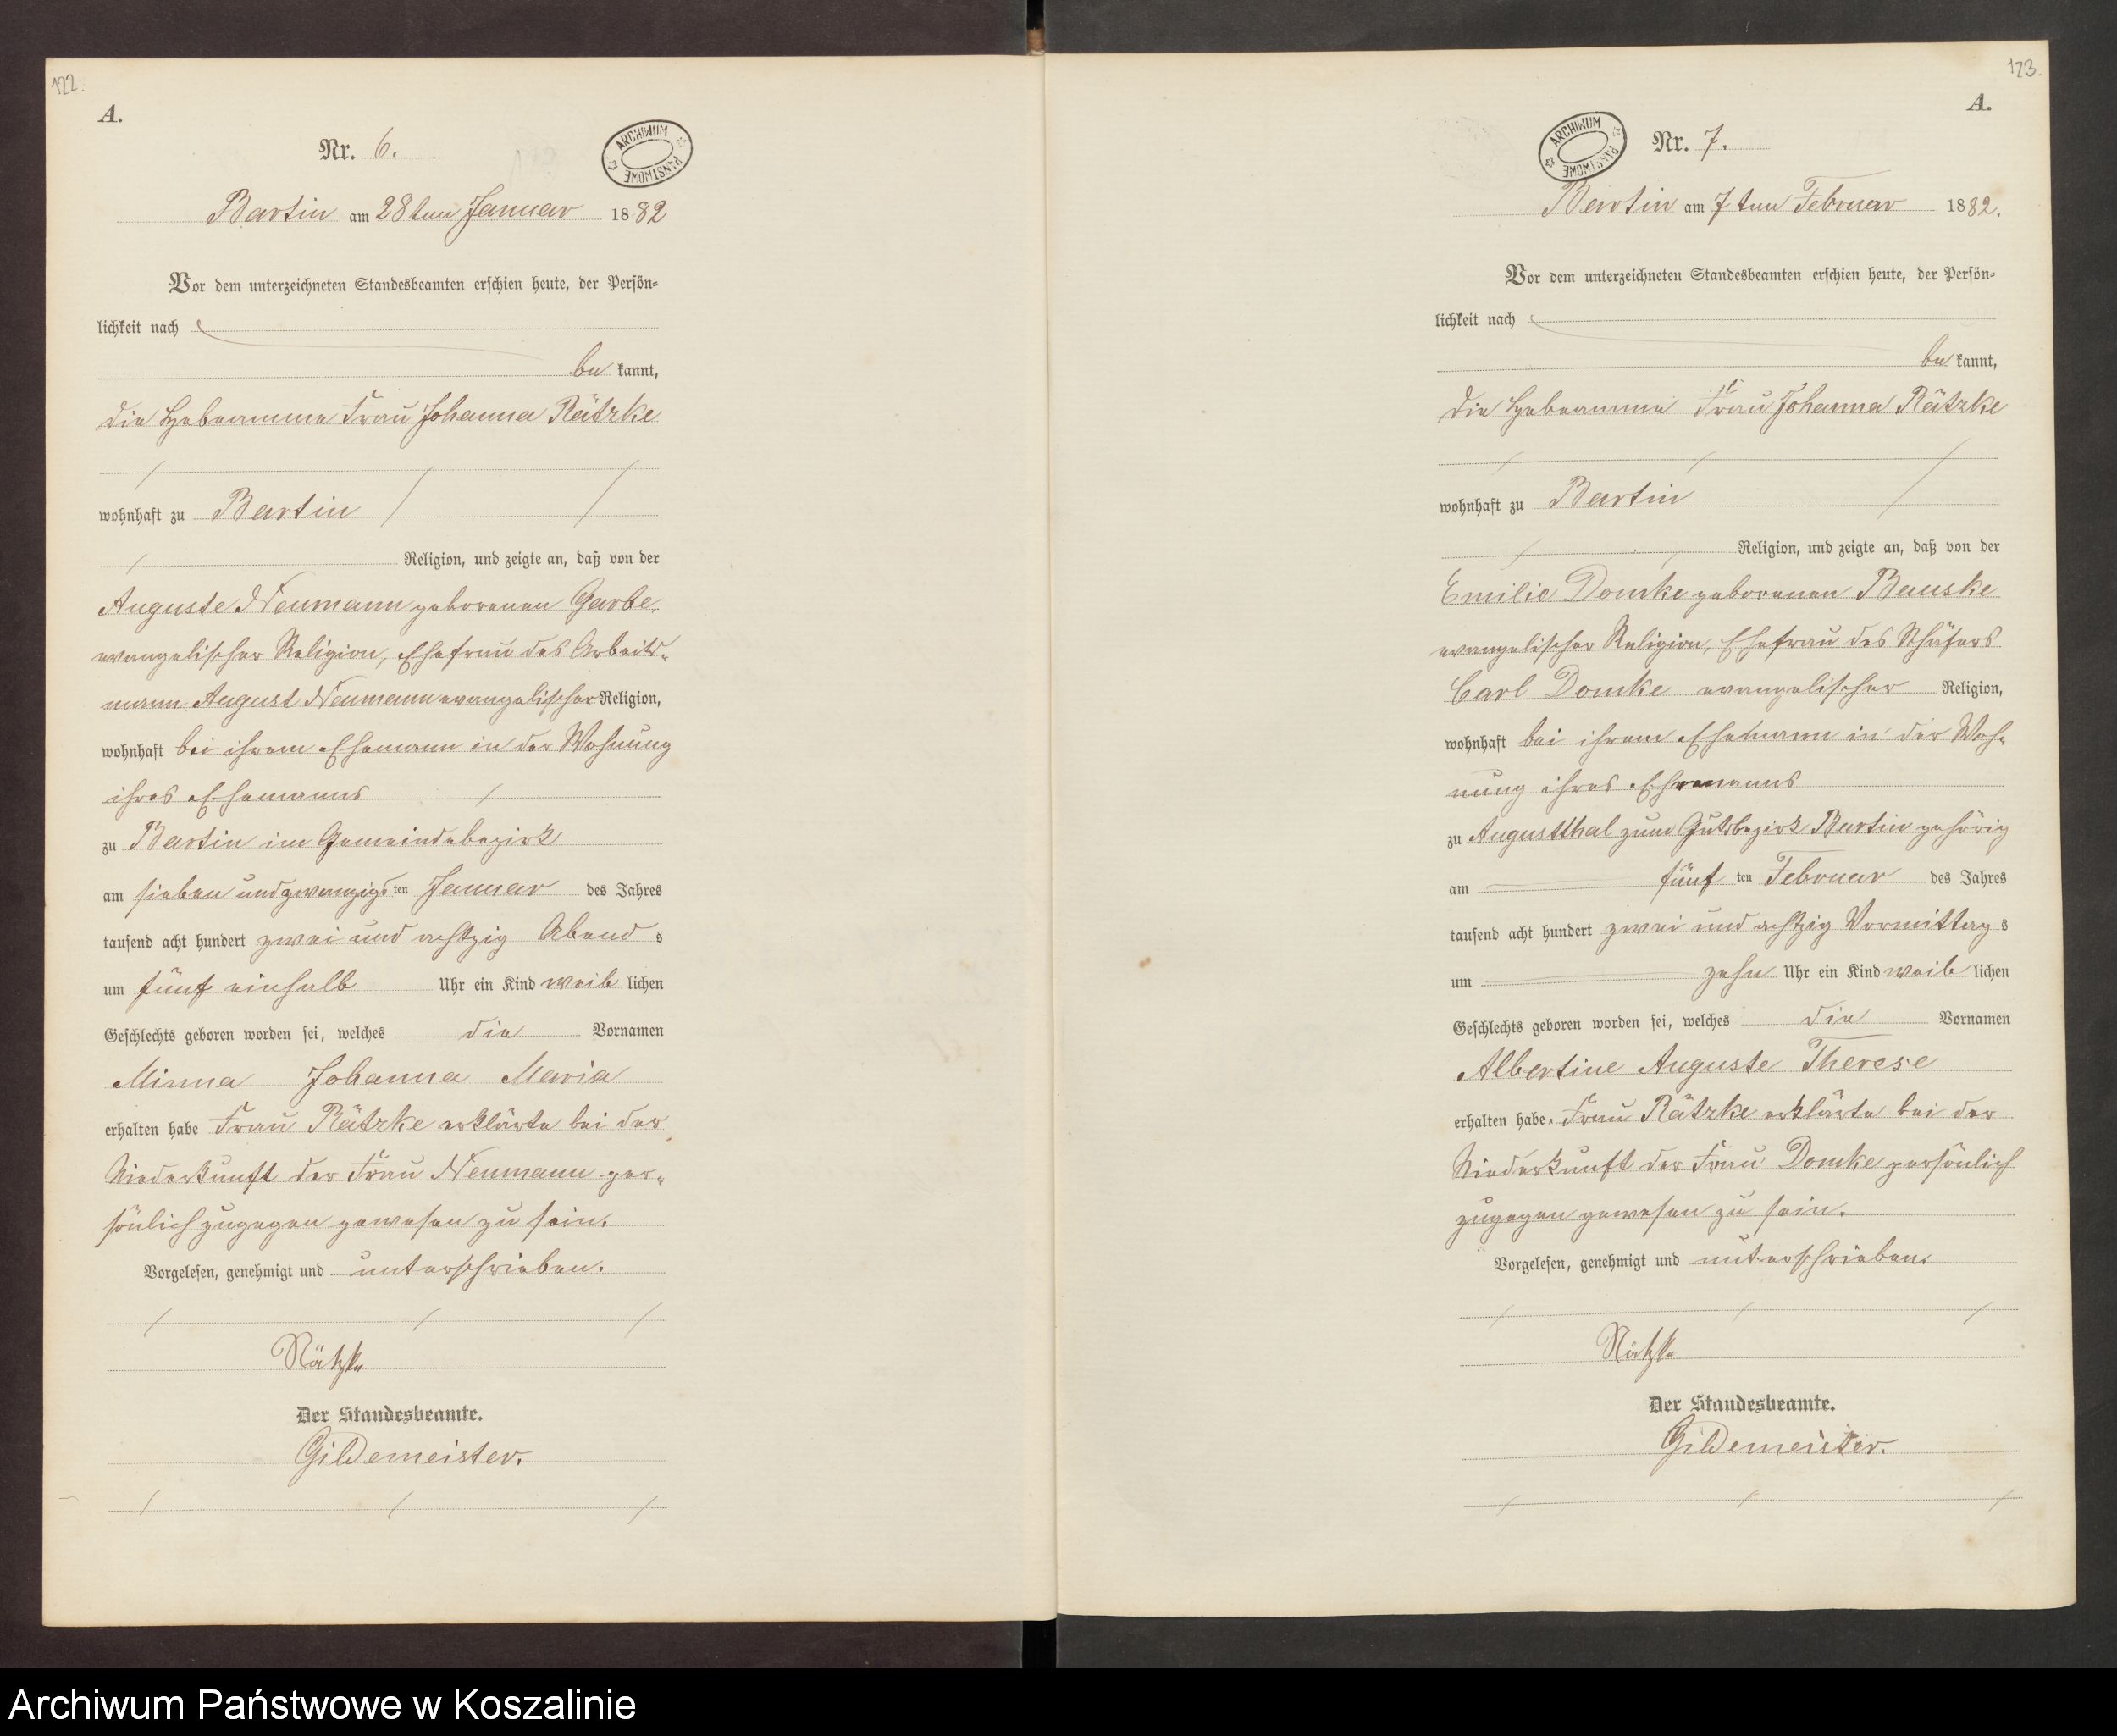 122.
A.
Nr. 6.
ARCHIWUM PAŃSTWOWE
Bartin am 28ten Januar 1882
Vor dem unterzeichneten Standesbeamten erschien heute, der Persön-
lichkeit nach
be kannt,
die Hebeamme Frau Johanna Rätzke
wohnhaft zu Bartin
Religion, und zeigte an, daß von der
Auguste Neumann geborenen Garbe,
evangelischer Religion, Ehefrau des Arbeits-
mann August Neumann evangelischer Religion,
wohnhaft bei ihrem Ehemann in der Wohnung
ihres Ehemanns
zu Bartin im Gemeindebezirk
am sieben und zwanzigsten Januar des Jahres
tausend acht hundert zwei und achtzig Abend s
um fünf einhalb Uhr ein Kind weib lichen
Geschlechts geboren worden sei, welches die Vornamen
Minna Johanna Maria
erhalten habe Frau Rätzke erklärte bei der
Niederkunft der Frau Neumann per-
sönlich zugegen gewesen zu sein.
Vorgelesen, genehmigt und unterschrieben.
Rätzke
Der Standesbeamte.
Gildemeister.
123.
A.
ARCHIWUM PAŃSTWOWE
Nr. 7.
Bartin am 7ten Februar 1882.
Vor dem unterzeichneten Standesbeamten erschien heute, der Persön-
lichkeit nach
be kannt,
die Hebeamme Frau Johanna Rätzke
wohnhaft zu Bartin
Religion, und zeigte an, daß von der
Emilie Domke geborenen Bauske
evangelischer Religion, Ehefrau des Schäfers
Carl Domke evangelischer Religion,
wohnhaft bei ihrem Ehemann in der Woh-
nung ihres Ehemanns
zu Augustthal zum Gutsbezirk Bartin gehörig
am fünf ten Februar des Jahres
tausend acht hundert zwei und achtzig Vormittag s
um zehn Uhr ein Kind weib lichen
Geschlechts geboren worden sei, welches die Vornamen
Albertine Auguste Therese
erhalten habe. Frau Rätzke erklärte bei der
Niederkunft der Frau Domke persönlich
zugegen gewesen zu sein.
Vorgelesen, genehmigt und unterschrieben.
Rätzke
Der Standesbeamte.
Gildemeister.
Archiwum Państwowe w Koszalinie